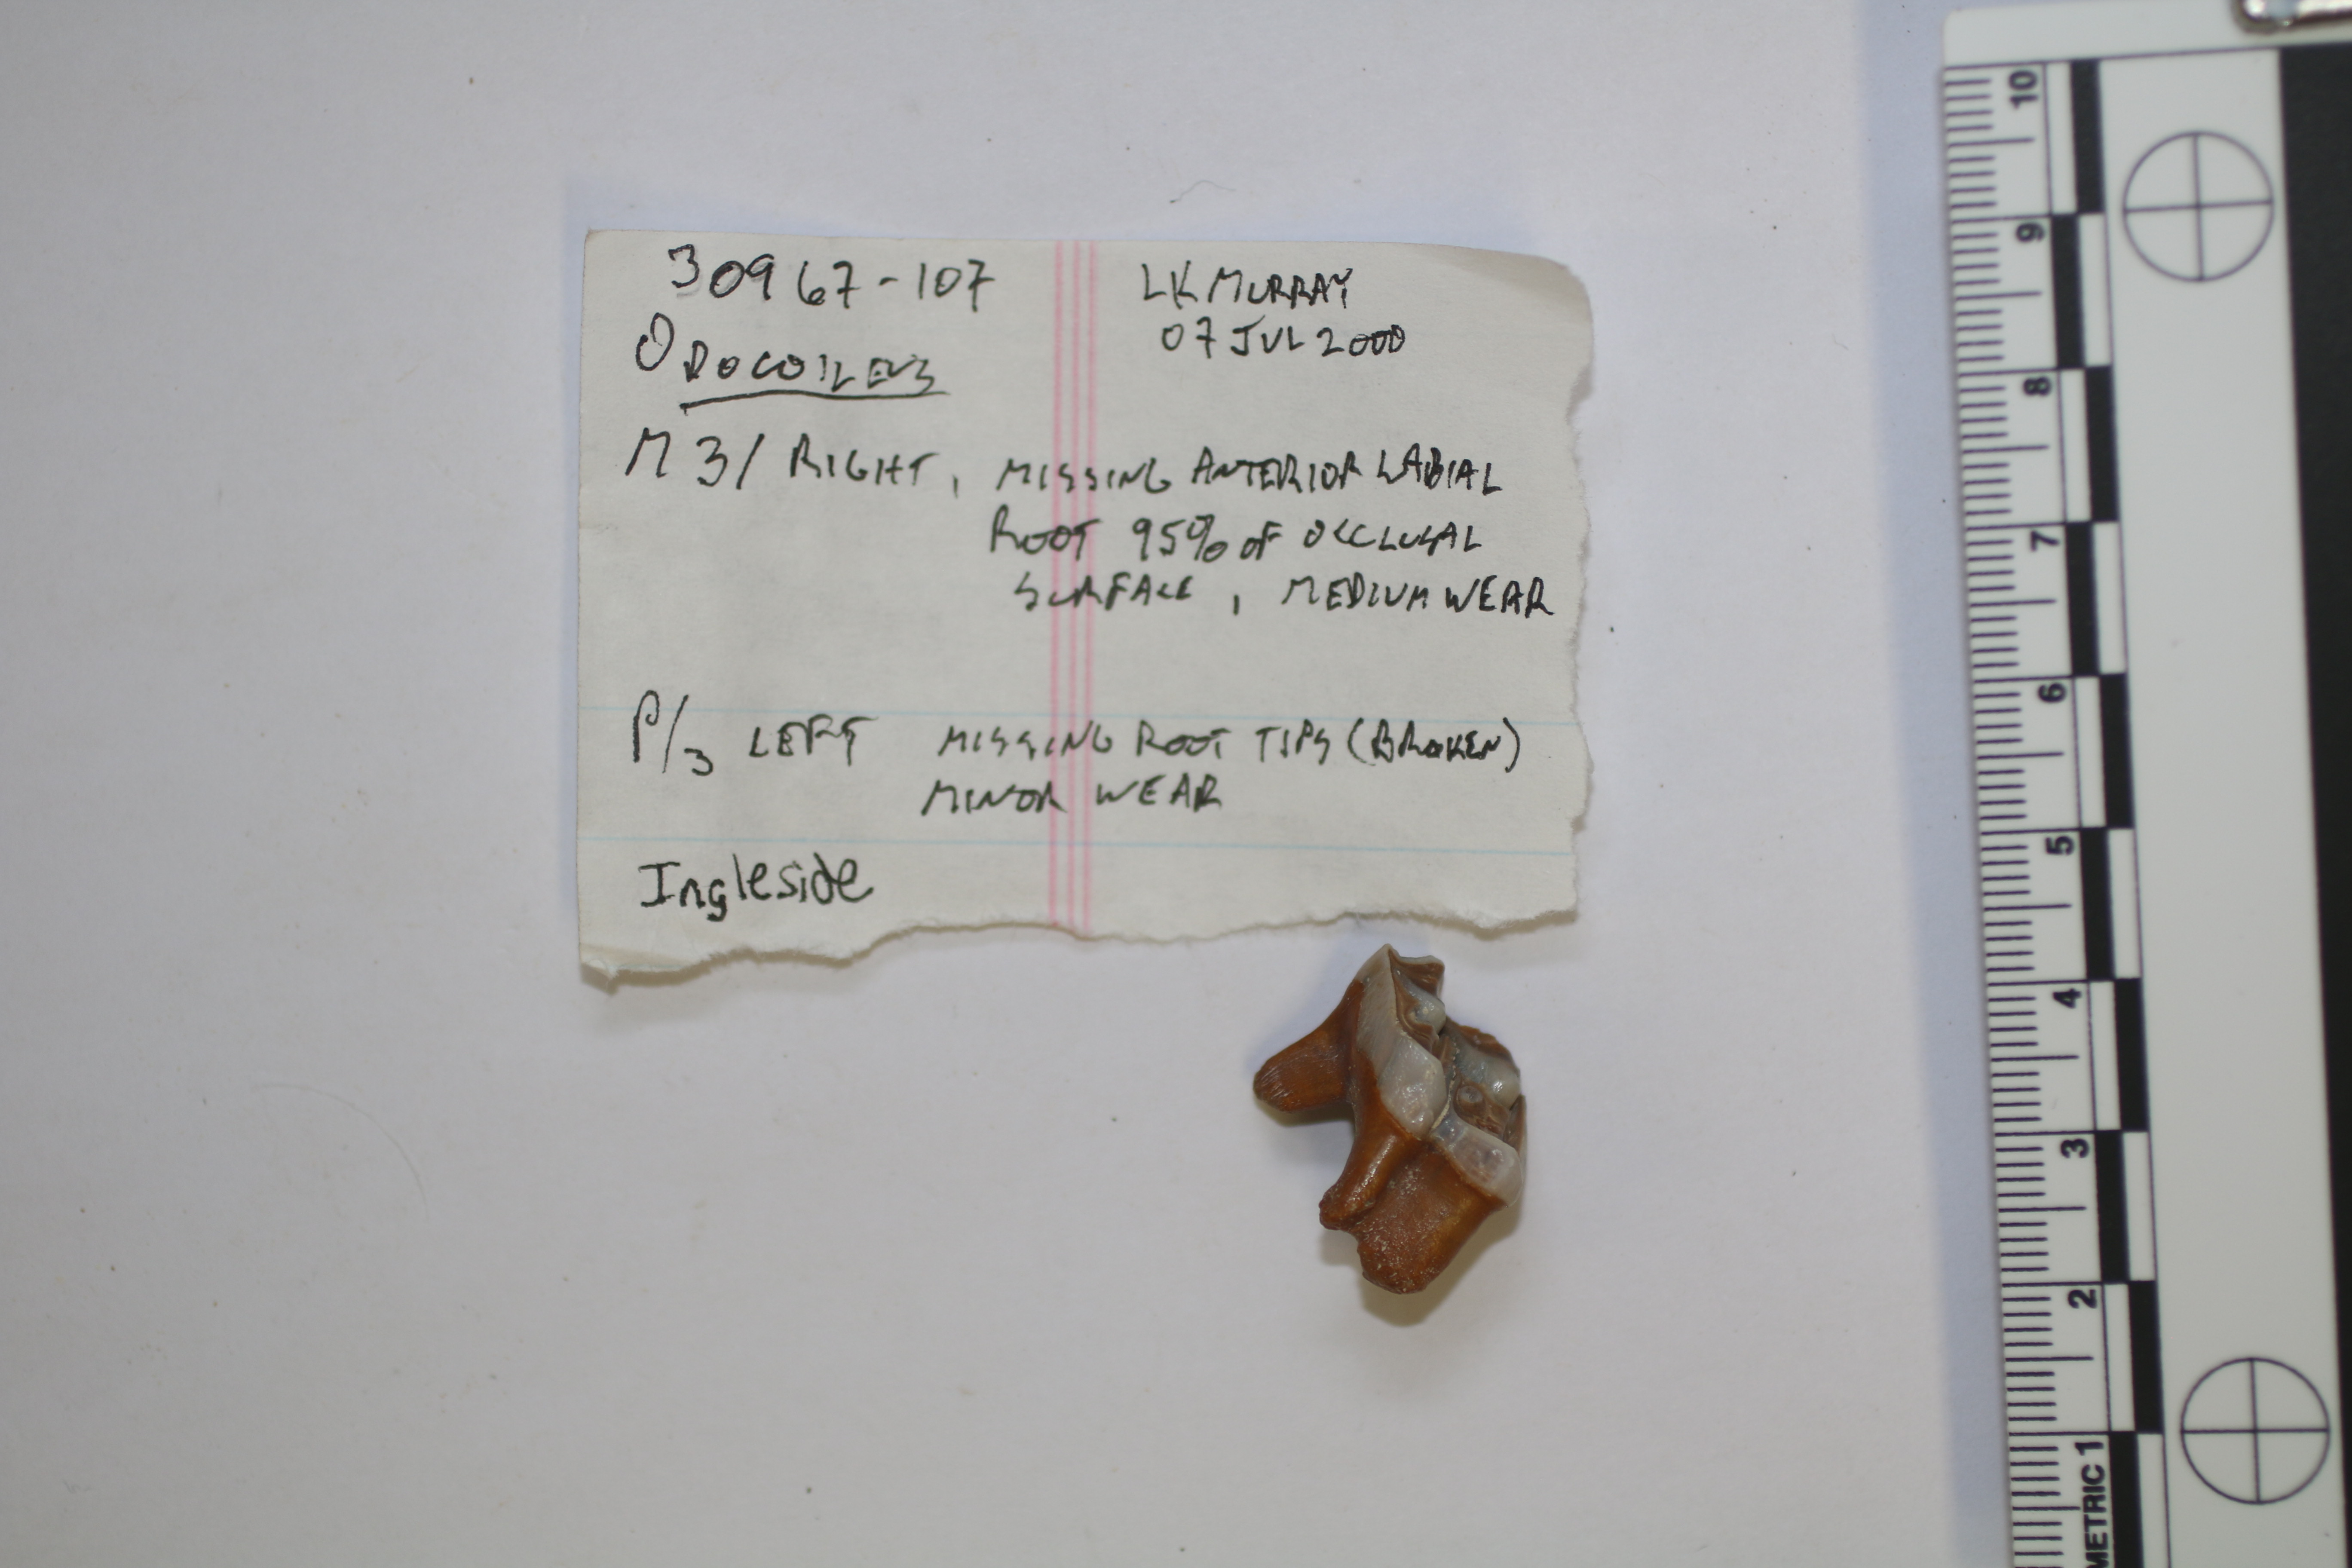 30967-107
LK MURRAY
07 JUL 2000
ODOCOILEUS
M3/ RIGHT, MISSING ANTERIOR LABIAL
ROOT 95% OF OCCLUSAL
SURFACE, MEDIUM WEAR
P/3 LEFT MISSING ROOT TIPS (BROKEN)
MINOR WEAR
Ingleside
10
9
8
7
6
5
4
3
2
METRIC 1